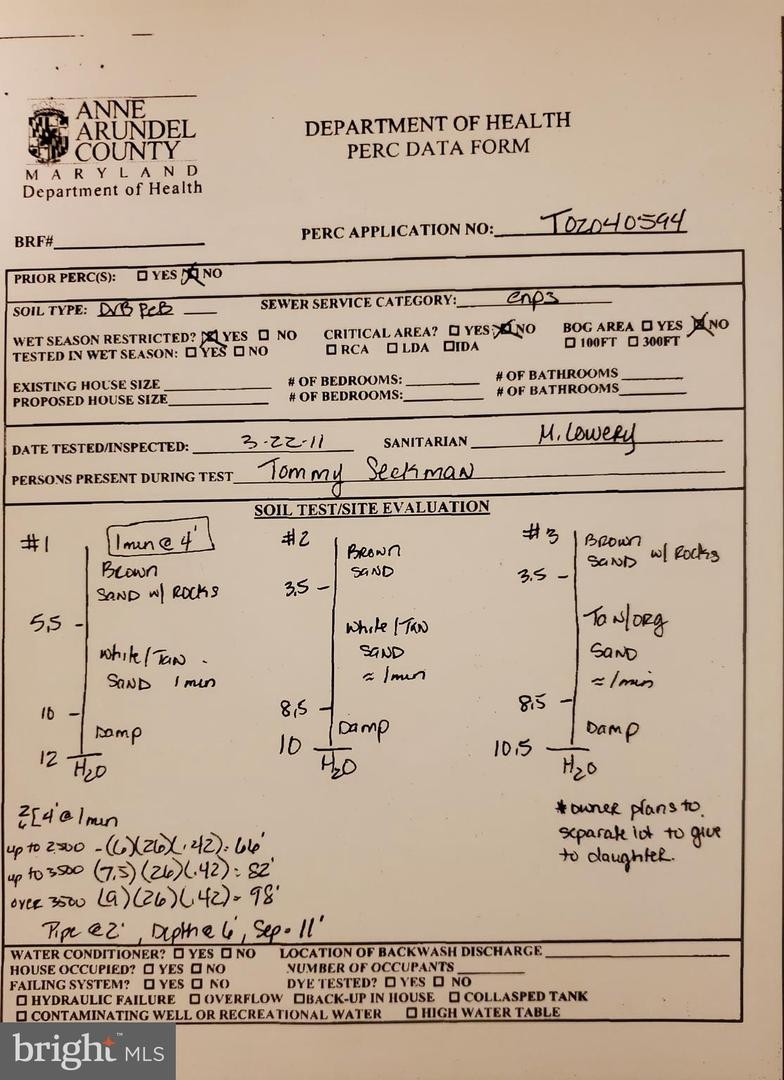 ANNE
ARUNDEL
COUNTY
MARYLAND
Department of Health
DEPARTMENT OF HEALTH
PERC DATA FORM
BRF#
PERC APPLICATION NO: T02040594
PRIOR PERC(S): ☐ YES ☒ NO
SOIL TYPE: DVB PcB SEWER SERVICE CATEGORY: enp3
WET SEASON RESTRICTED? ☒ YES ☐ NO CRITICAL AREA? ☐ YES ☒ NO BOG AREA ☐ YES ☒ NO
TESTED IN WET SEASON: ☐ YES ☐ NO ☐ RCA ☐ LDA ☐ IDA ☐ 100FT ☐ 300FT
EXISTING HOUSE SIZE # OF BEDROOMS: # OF BATHROOMS
PROPOSED HOUSE SIZE # OF BEDROOMS: # OF BATHROOMS
DATE TESTED/INSPECTED: 3-22-11 SANITARIAN M. Lowery
PERSONS PRESENT DURING TEST Tommy Seckman
SOIL TEST/SITE EVALUATION
#1 1 min @ 4'
Brown
SAND w/ ROCKS
5.5
White/TAN
SAND 1 min
10
Damp
12
H2O
#2
Brown
SAND
3.5
White/TAN
SAND
≈ 1 min
8.5
Damp
10
H2O
#3
Brown
SAND w/ ROCKS
3.5
TaN/ORG
SAND
≈ 1 min
8.5
Damp
10.5
H2O
2
6 [4' @ 1 min
up to 2500 - (6)(26)(.42) = 66'
up to 3500 (7.5)(26)(.42) = 82'
over 3500 (9)(26)(.42) = 98'
Pipe @ 2', Depth @ 6', Sep = 11'
* owner plans to
separate lot to give
to daughter.
WATER CONDITIONER? ☐ YES ☐ NO LOCATION OF BACKWASH DISCHARGE
HOUSE OCCUPIED? ☐ YES ☐ NO NUMBER OF OCCUPANTS
FAILING SYSTEM? ☐ YES ☐ NO DYE TESTED? ☐ YES ☐ NO
☐ HYDRAULIC FAILURE ☐ OVERFLOW ☐ BACK-UP IN HOUSE ☐ COLLASPED TANK
☐ CONTAMINATING WELL OR RECREATIONAL WATER ☐ HIGH WATER TABLE
bright™ MLS